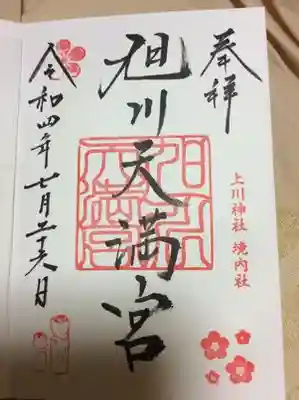 奉拝
上川神社 境内社
旭川天満宮
令和四年七月二十六日